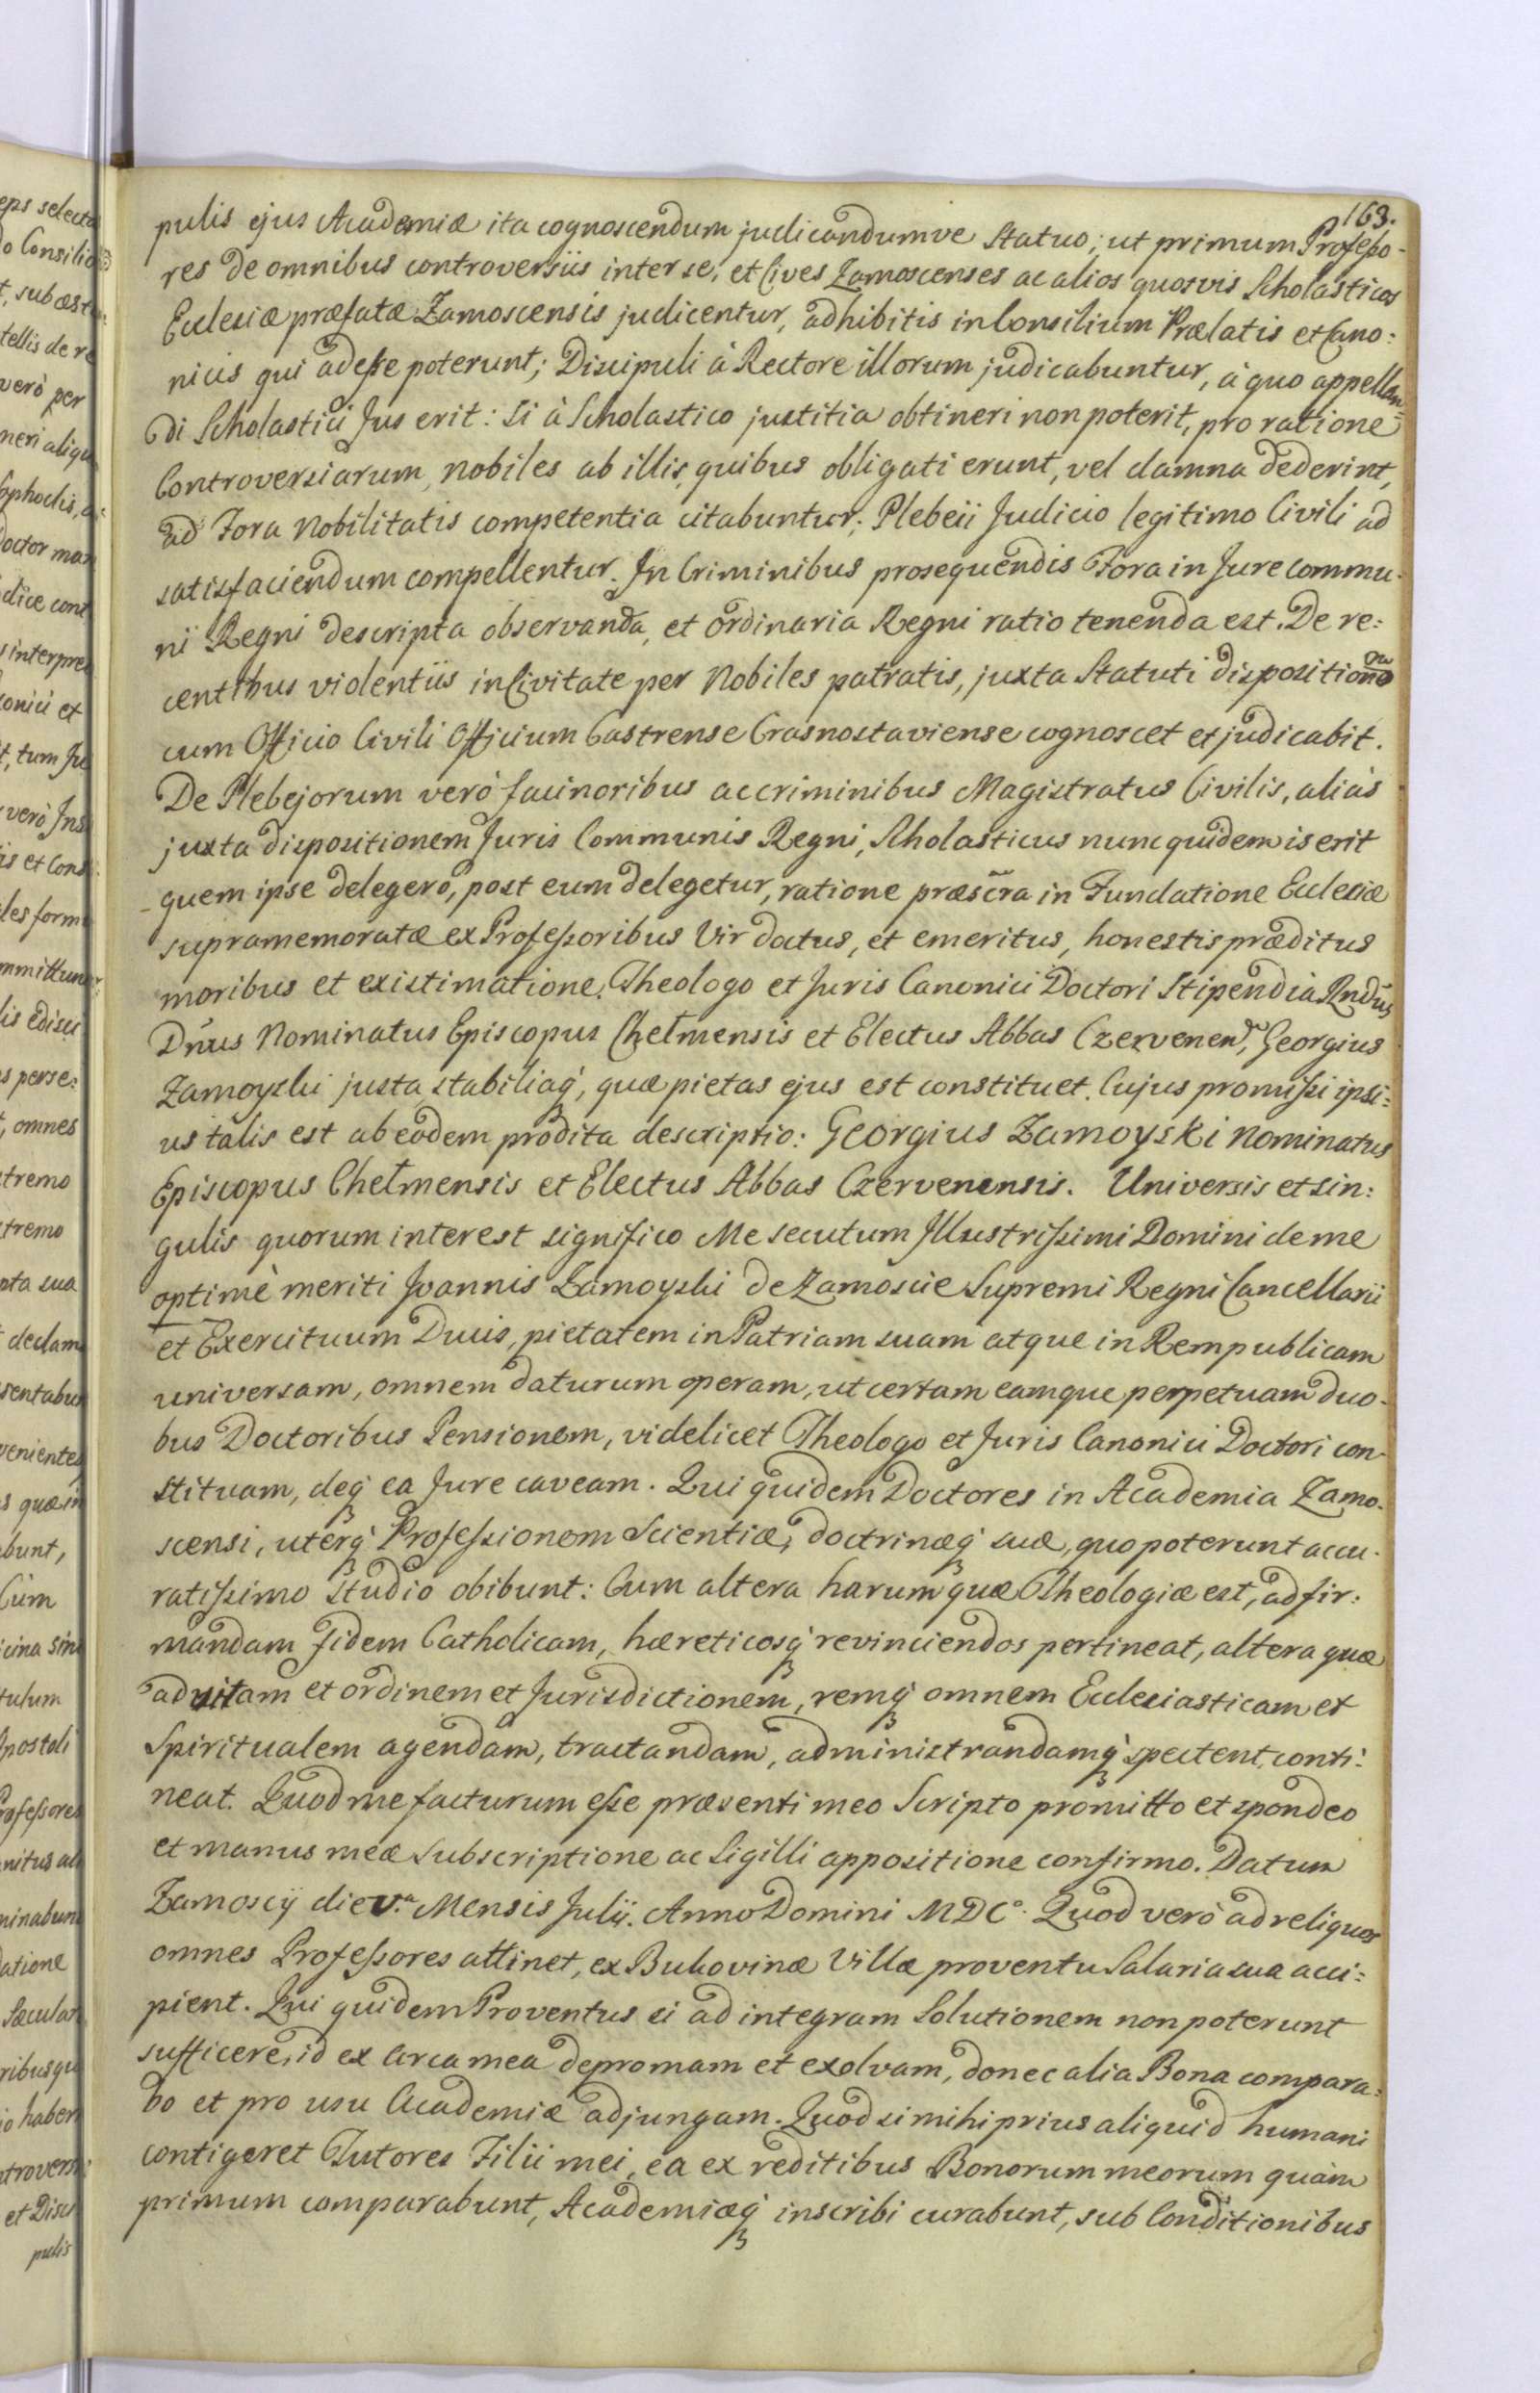 163.
pulis ejus Academiæ ita cognoscendum judicandumve statuo; ut primum Professo-
res de omnibus controversiis inter se, et Cives Zamoscenses ac alios quosvis Scholasticos
Ecclesiæ præfatæ Zamoscensis judicentur, adhibitis in Consilium Prælatis et Cano:
nicis qui adesse poterunt; Discipuli à Rectore illorum judicabuntur, à quo appellan=
di Scholastici Jus erit: si à Scholastico justitia obtineri non poterit, pro ratione
Controversiarum, nobiles ab illis, quibus obligati erunt, vel damna dederint,
ad Fora Nobilitatis competentia citabuntur; Plebeii Judicio legitimo Civili ad
satisfaciendum compellentur. In Criminibus prosequendis Fora in Jure commu-
ni Regni descripta observanda, et ordinaria Regni ratio tenenda est. De re:
centibus violentiis in Civitate per Nobiles patratis, juxta Statuti dispositione
cum Officio Civili Officium Castrense Crasnostaviense cognoscet et judicabit.
De Plebejorum verò facinoribus ac criminibus Magistratus Civilis, aliàs
juxta dispositionem Juris Communis Regni, Scholasticus nunc quidem is erit
quem ipse delegero, post eum delegetur, ratione præscrā in Fundatione Ecclesiæ
supramemoratæ ex Professoribus Vir doctus, et emeritus, honestis præditus
moribus et existimatione. Theologo et Juris Canonici Doctori Stipendia Rndūs
Dnūs Nominatus Episcopus Chełmensis et Electus Abbas Czervenen, Georgius
Zamoyski justa stabiliaq, quæ pietas ejus est constituet. Cujus promissi ipsi:
us talis est ab eodem prodita descriptio: Georgius Zamoyski Nominatus
Episcopus Chełmensis et Electus Abbas Czervenensis. Universis et sin:
gulis quorum interest significo Me secutum Illustrissimi Domini de me
optimè meriti Joannis Zamoyski de Zamoscie Supremi Regni Cancellarii
et Exercituum Ducis, pietatem in Patriam suam atque in Rempublicam
universam, omnem daturum operam, ut certam eamque perpetuam duo-
bus Doctoribus Pensionem, videlicet Theologo et Juris Canonici Doctori con-
stituam, deq ea Jure caveam. Qui quidem Doctores in Academia Zamo-
scensi, uterq Professionem Scientiæ, doctrinæq suæ, quo poterunt accu-
ratissimo studio obibunt: Cum altera harum quæ Theologiæ est, ad fir:
mandam fidem Catholicam, hæreticosq revinciendos pertineat, altera quæ
ad vitam et ordinem et Jurisdictionem, remq omnem Ecclesiasticam et
Spiritualem agendam, tractandam, administrandamq spectent, conti:
neat. Quod me facturum esse præsenti meo Scripto promitto et spondeo
et manus meæ subscriptione ac Sigilli appositione confirmo. Datum
Zamoscij die V.ª Mensis Julij. Anno Domini MDCº. Quod verò ad reliquos
omnes Professores attinet, ex Bukovinæ Villæ proventu Salaria sua acci=
pient. Qui quidem Proventus si ad integram Solutionem non poterunt
sufficere, id ex Arca mea depromam et exolvam, donec alia Bona compara=
bo et pro usu Academiæ adjungam. Quod si mihi prius aliquid humani
contigeret Tutores Filii mei, ea ex reditibus Bonorum meorum quàm
primum comparabunt, Academiæq inscribi curabunt, sub Conditionibus